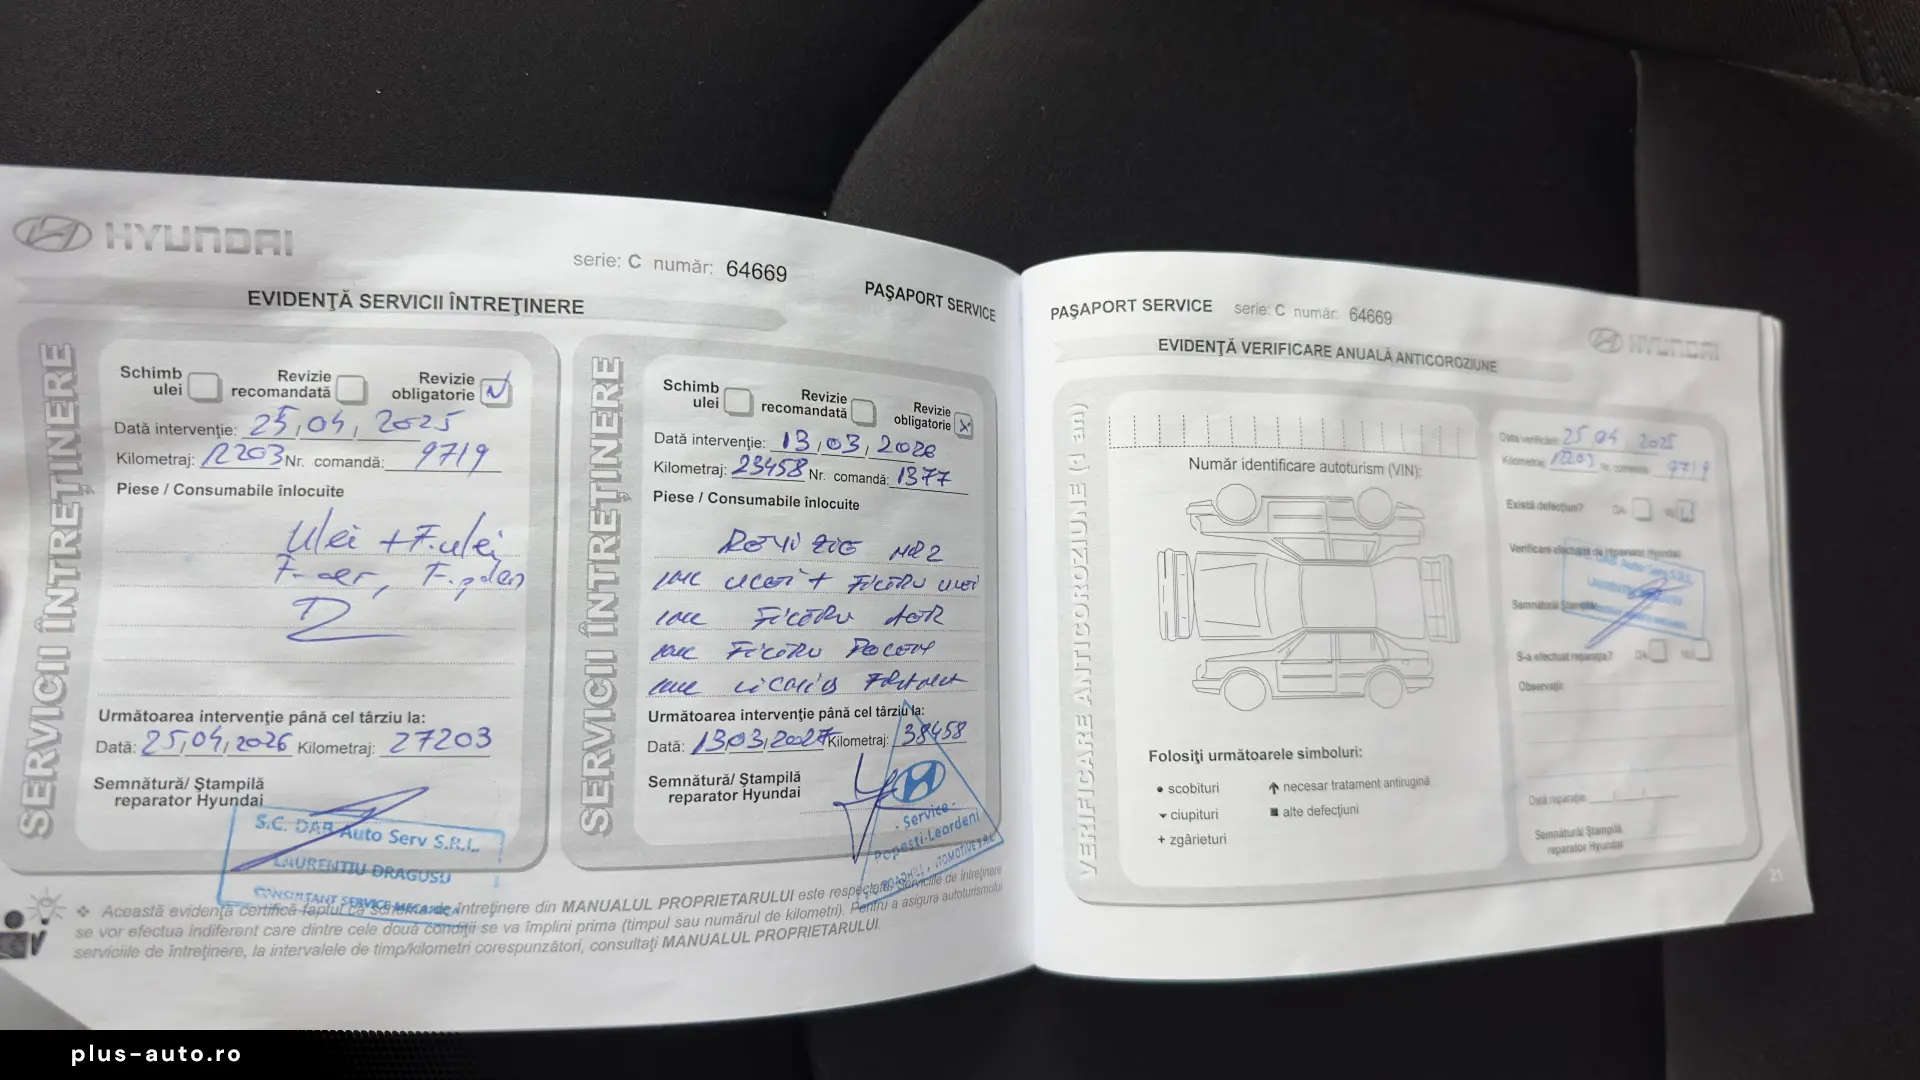 HYUNDAI
serie: C număr: 64669
PAŞAPORT SERVICE
EVIDENŢĂ SERVICII ÎNTREŢINERE
SERVICII ÎNTREŢINERE
Schimb ulei
Revizie recomandată
Revizie obligatorie
Dată intervenţie: 25,04,2025
Kilometraj: 12203 Nr. comandă: 9719
Piese / Consumabile înlocuite
Ulei + F.ulei
F-aer, F.polen
Următoarea intervenţie până cel târziu la:
Dată: 25,04,2026 Kilometraj: 27203
Semnătură/ Ştampilă
reparator Hyundai
S.C. DAB Auto Serv S.R.L.
LAURENTIU DRAGUSU
CONSULTANT SERVICE MECANICA
SERVICII ÎNTREŢINERE
Schimb ulei
Revizie recomandată
Revizie obligatorie
Dată intervenţie: 13,03,2026
Kilometraj: 23458 Nr. comandă: 1377
Piese / Consumabile înlocuite
NR 2
+ FILTRU ULEI
FILTRU AER
FILTRU POLEN
Următoarea intervenţie până cel târziu la:
Dată: 13,03,2027 Kilometraj: 38458
Semnătură/ Ştampilă
reparator Hyundai
- Service -
Popeşti-Leordeni
❖ Această evidenţă certifică faptul că schema de întreţinere din MANUALUL PROPRIETARULUI este respectată. Serviciile de întreţinere
se vor efectua indiferent care dintre cele două condiţii se va împlini prima (timpul sau numărul de kilometri). Pentru a asigura autoturismului
serviciile de întreţinere, la intervalele de timp/kilometri corespunzători, consultaţi MANUALUL PROPRIETARULUI.
PAŞAPORT SERVICE serie: C număr: 64669
HYUNDAI
EVIDENŢĂ VERIFICARE ANUALĂ ANTICOROZIUNE
VERIFICARE ANTICOROZIUNE (1 an)
Număr identificare autoturism (VIN):
Folosiţi următoarele simboluri:
• scobituri
ciupituri
+ zgârieturi
necesar tratament antirugină
■ alte defecţiuni
Data verificării: 25 04 2025
Kilometraj: 12203 Nr. comandă: 9719
Există defecţiuni? DA
Verificare efectuată de reparator Hyundai
Semnătură/ Ştampilă
S-a efectuat reparaţia? DA NU
Observaţii:
Dată reparaţie:
Semnătură/ Ştampilă
reparator Hyundai
21
plus-auto.ro